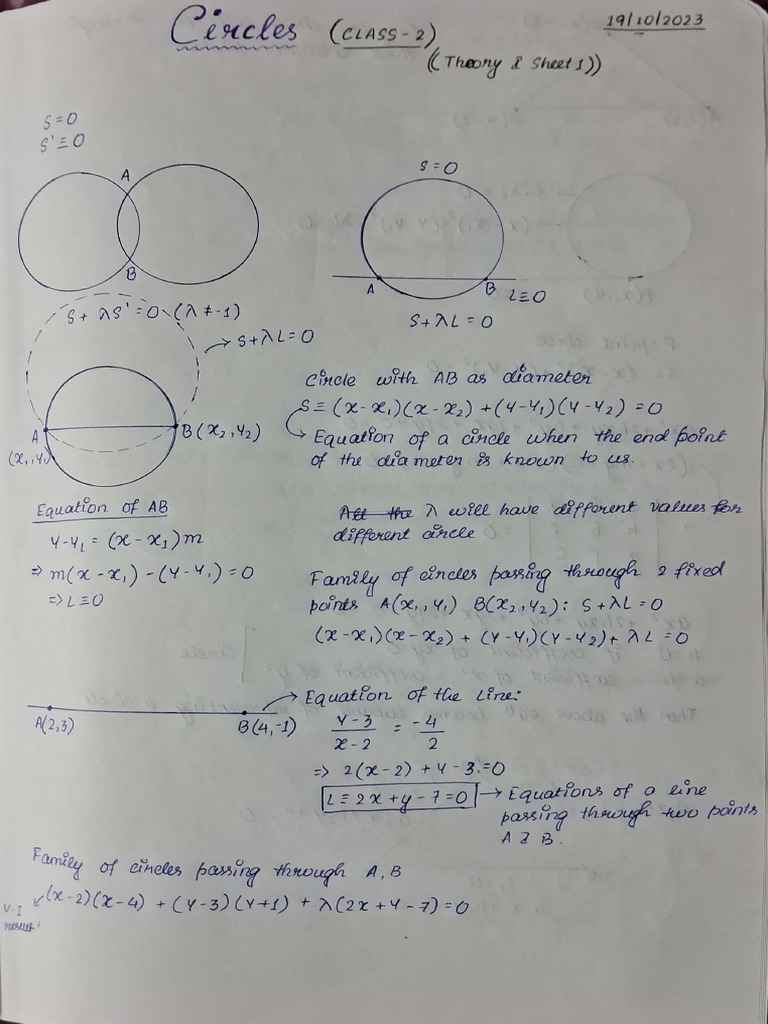 Circles (CLASS-2)
19/10/2023
((Theory & Sheet 1))
S=0
S'≡0
A
B
S + λS' = 0 (λ ≠ -1)
S=0
A
B
L≡0
S+λL = 0
→ S+λL=0
A
(x₁,y₁)
B(x₂,y₂)
Circle with AB as diameter
S≡(x-x₁)(x-x₂)+(y-y₁)(y-y₂) =0
→ Equation of a circle when the end point
of the diameter is known to us.
Equation of AB
y-y₁ = (x-x₁)m
⇒ m(x-x₁)-(y-y₁)=0
⇒ L≡0
All the λ will have different values for
different circle
Family of circles passing through 2 fixed
points A(x₁,y₁) B(x₂,y₂): S+λL=0
(x-x₁)(x-x₂) + (y-y₁)(y-y₂)+ λL =0
A(2,3)
B(4,-1)
→ Equation of the Line:
y-3/x-2 = -4/2
⇒ 2(x-2)+y-3=0
L≡2x+y-7=0 → Equations of a line
passing through two points
A & B.
Family of circles passing through A,B
(x-2)(x-4) + (y-3)(y+1) + λ(2x+y-7)=0
V.I